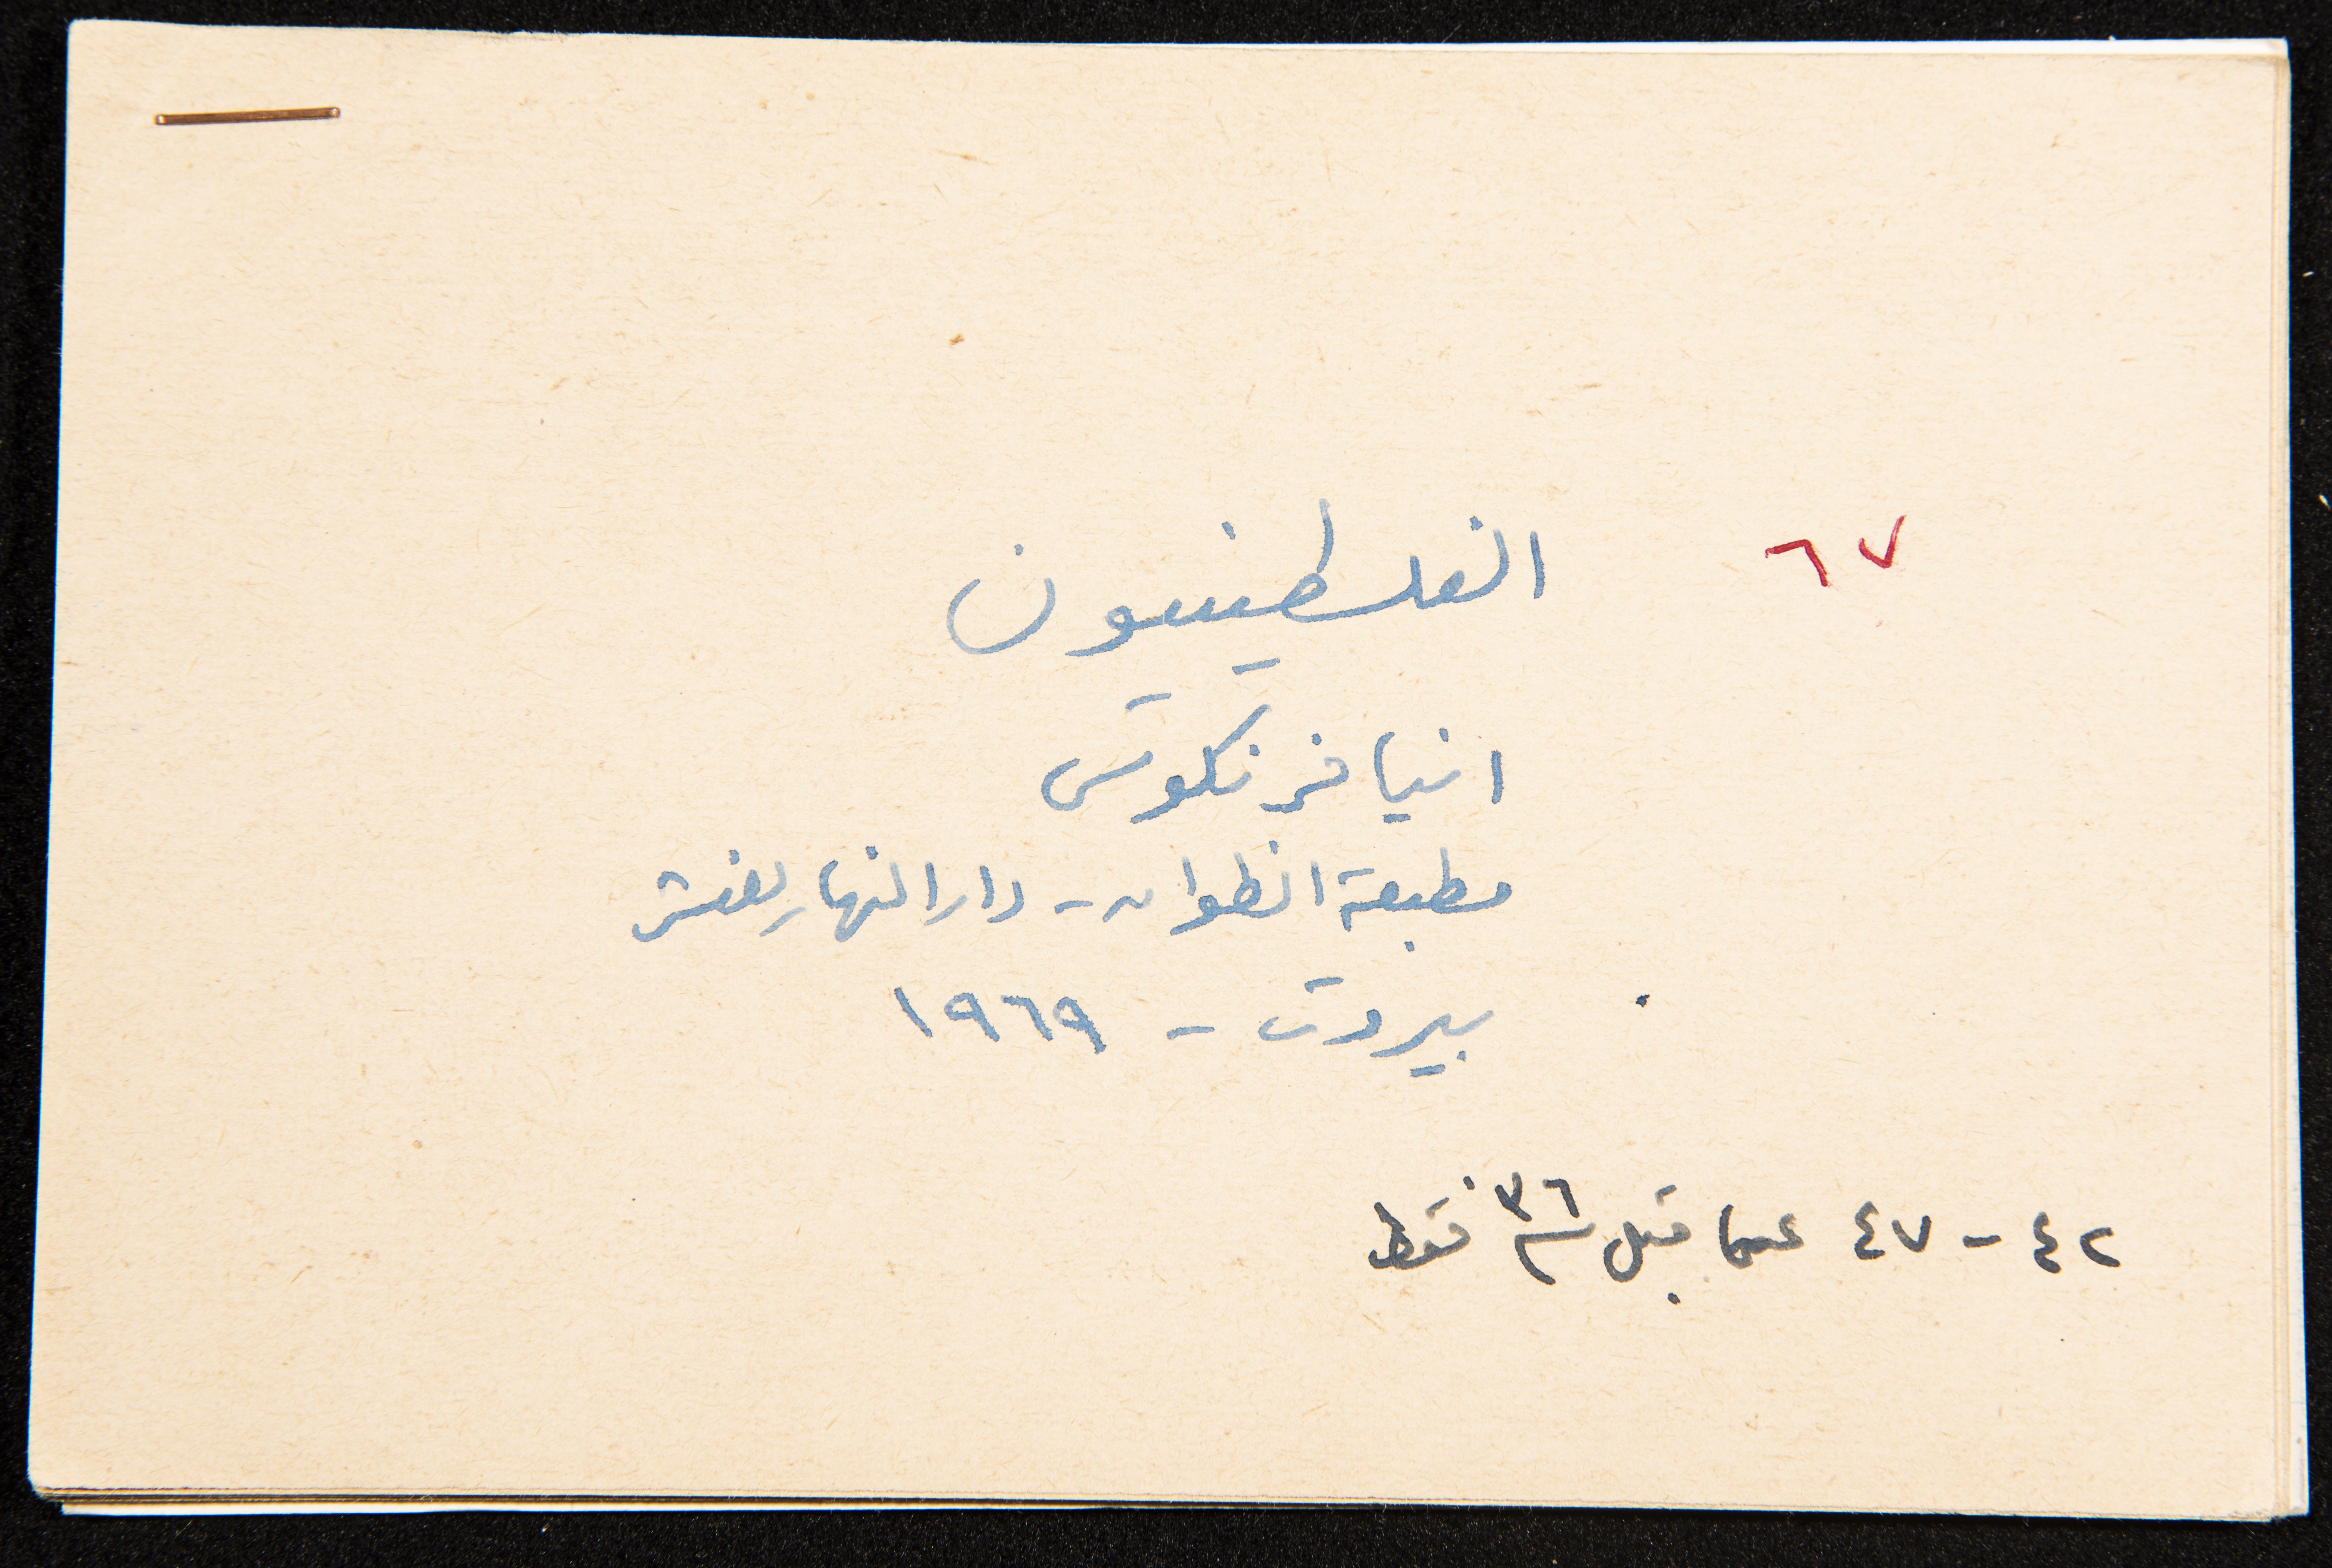 ٦٧
الفلسطينيون
انيا فرنكوس
مطبعة انطوان - دار النهار للنشر
بيروت - ١٩٦٩
٤٢ - ٤٧ عما قبل سنة ٣٦ فقط